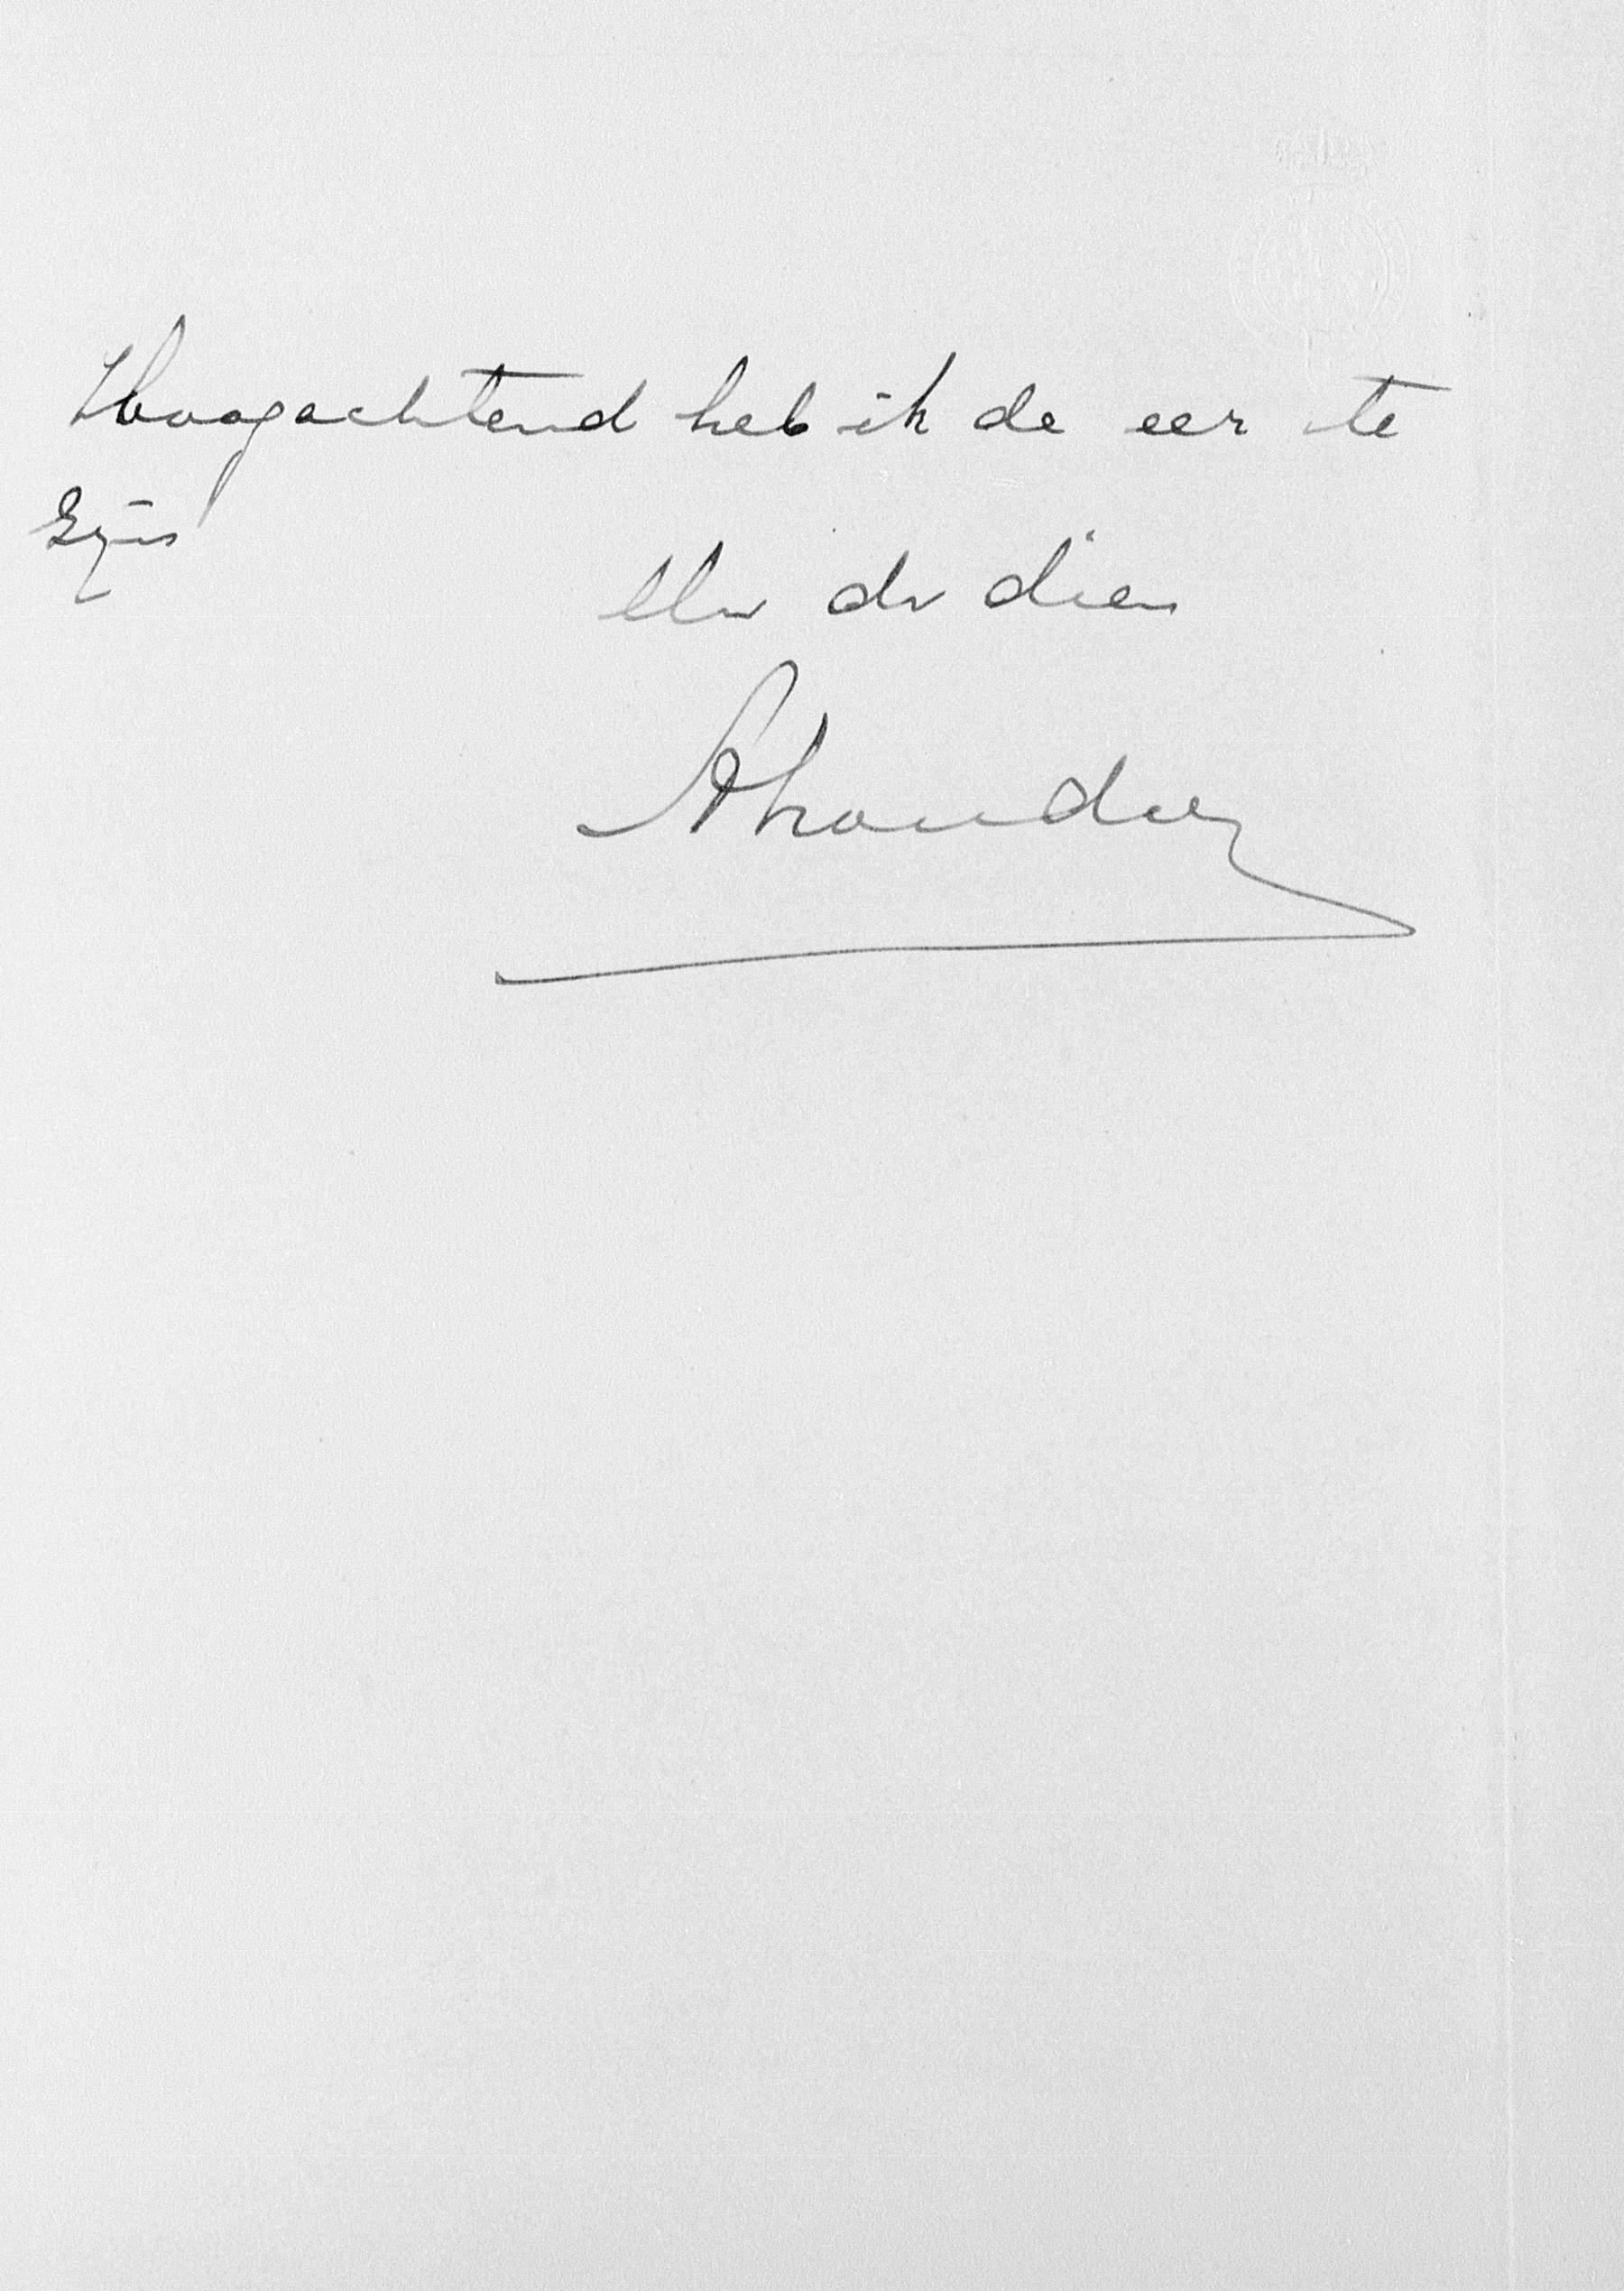 Hoogachtend heb ik de eer te
zijn
Uw dv dien